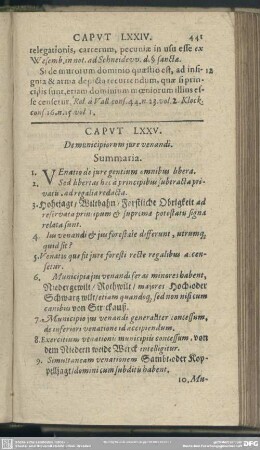 CAPVT LXXIV. 441
relegationis, carcerum, pecuniæ in usu esse ex
Wesemb. in not. ad Schneidevv. d. §. sancta.
Si de murorum dominio quæstio est, ad insi- 12
gnia & arma depicta recurrendum, quæ si prin-
cipis sunt, etiam dominium mœniorum illius es-
se censetur. Rol. à Vall. cons. 44. n. 23. vol. 2. Klock.
cons. 26. n. 15 vol 1.
CAPVT LXXV.
De municipiorum jure venandi.
Summaria.
1. VEnatio de jure gentium omnibus libera.
2. Sed libertas hæc à principibus subtracta pri-
vatis, ad regalia redacta.
3. Hohejagt / Wildbahn / Forstliche Obrigkeit ad
reservata principum & supremæ potestatis signa
relata sunt.
4. Ius venandi & jus forestale differunt, utrumq;
quid sit?
5. Venatio quæ fit jure foresti recte regalibus accen-
setur.
6. Municipia jus venandi feras minores habent,
Niedergewilt / Rothwilt / majores Hoch oder
Schwartzwilt / etiam quandoq; sed non nisi cum
canibus von Ster ckauß.
7. Municipio jus venandi generaliter concessum,
de inferiori venatione id accipiendum.
8. Exercitium venationis municipiis concessum, von
dem Niedern weide Werck intelligitur.
9. Simultaneam venationem Sambt oder Kop-
peljagt / domini cum subditis habent.
10. Mu-